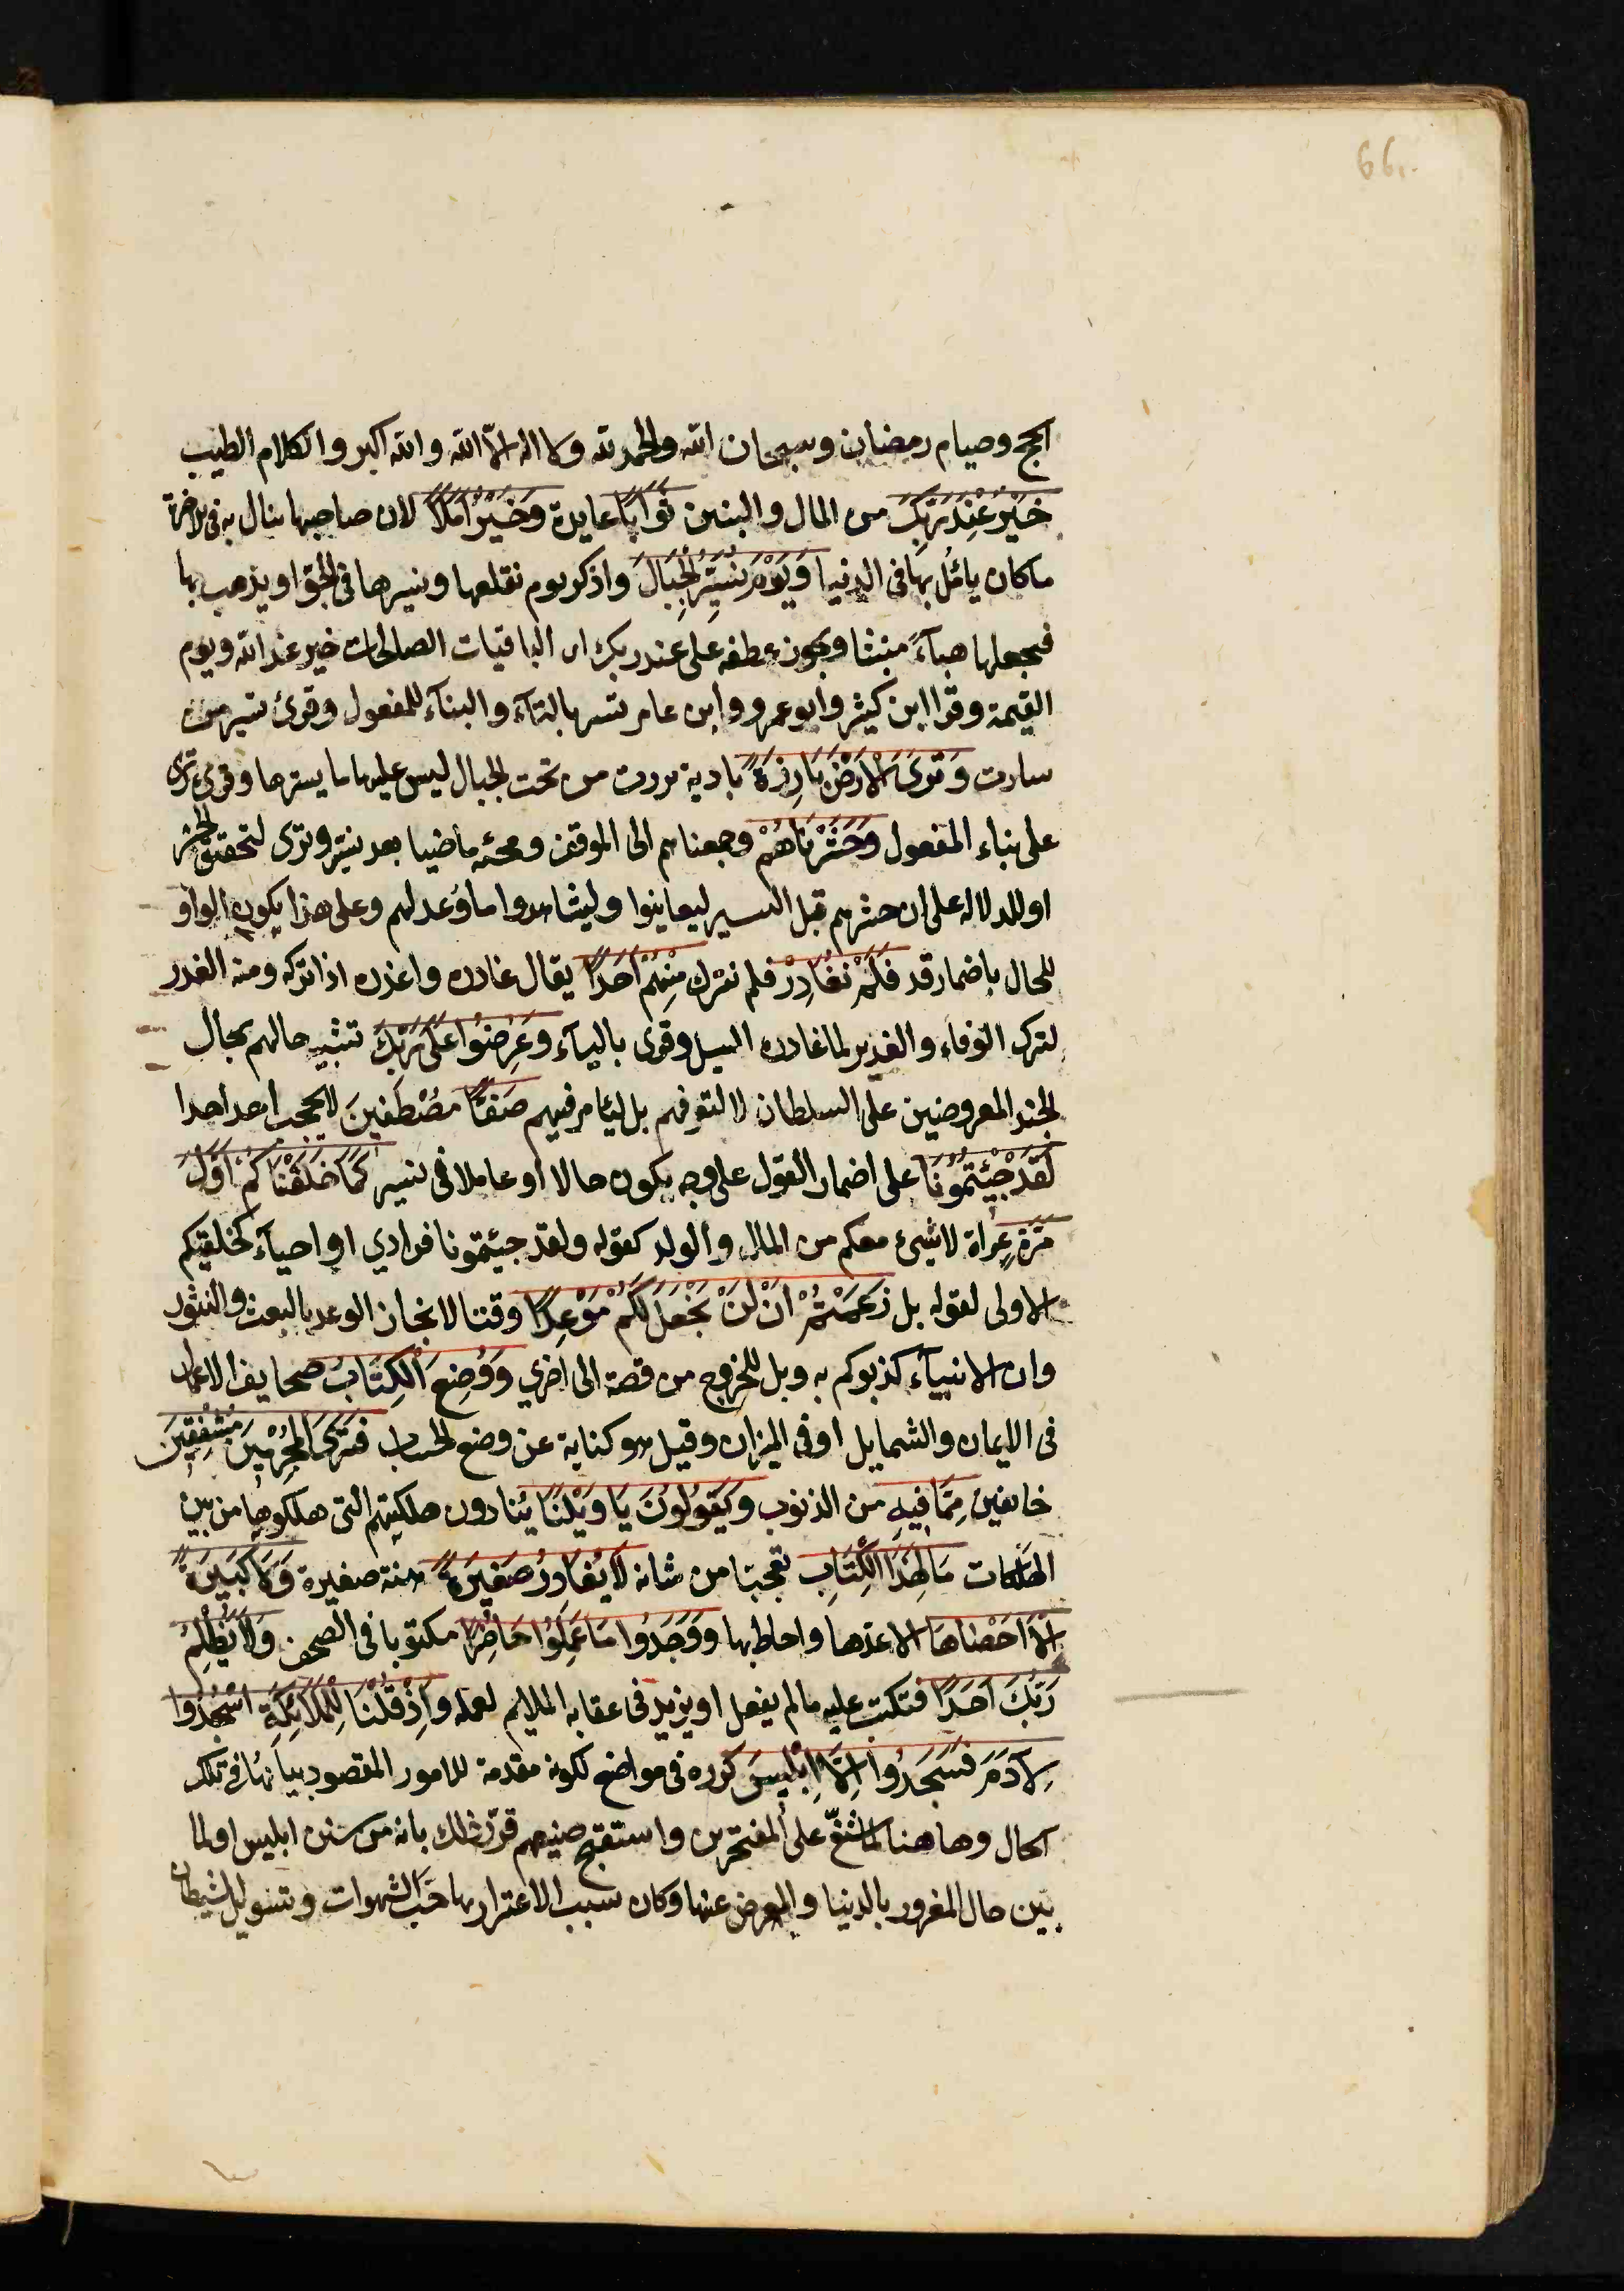 66
الحج وصيام رمضان وسبحان الله والحمد لله ولا اله الا الله والله اكبر والكلام الطيب
خَيْرٌ عِنْدَ رَبِّكَ من المال والبنين ثَوَابًا عايدة وَخَيْرٌ اَمَلًا لان صاحبها ينال به فى الاخرة
ما كان يامُلُ بها فى الدنيا وَيَوْمَ نُسَيِّرُ الْجِبَالَ واذكر يوم نقلعها ونسيرها فى الجوّ او يذهب بها
فيجعلها هبآءً منبثا ويجوز عطفه على عند ربك اى الباقيات الصالحات خير عند الله ويوم
القيمة وقرا ابن كثير وابو عمرو وابن عامر تسير بالتآء والبنآء للمفعول وقرئ تسير من
سارت وَتَرَى الْاَرْضَ بَارِزَةً بادية برزت من تحت الجبال ليس عليها ما يسترها وقرئ تُرى
على بناء المفعول وَحَشَرْنَاهُمْ وجمعناهم الى الموقف ومجئه ماضيا بعد نسير وترى لتحقق الحشر
او للدلالة على ان حشرهم قبل السير ليعاينوا وليشاهدوا ما وُعد لهم وعلى هذا يكون الواو
للحال باضمار قد فَلَمْ نُغَادِرْ فلم نترك مِنْهُمْ اَحَدًا يقال غادره واغدره اذا تركه ومنه الغدر
لترك الوفاء والغدير لما غادره السيل وقرئ باليآء وَعُرِضُوا عَلٰى رَبِّكَ تشبيه حالهم بحال
الجند المعروضين على السلطان لا لتعرفهم بل ليامر فيهم صَفًّا مُصْطَفِّينَ لا يحجب احد احدا
لَقَدْ جِئْتُمُونَا على اضمار القول على وجه يكون حالا او عاملا فى نسير كَمَا خَلَقْنَاكُمْ اَوَّلَ
مَرَّةٍ عراة لا شئ معكم من المال والولد كقوله ولقد جيئتمونا فرادي او احيآء كخلقتكم
الاولى لقوله بل زَعَمْتُمْ اَنْ لَنْ نَجْعَلَ لَكُمْ مَوْعِدًا وقتا لانجاز الوعد بالبعث والنشور
وان الانبيآء كذبوكم به وبل للخروج من قصة الى اخري وَوُضِعَ الْكِتَابُ صحايف الاعمال
فى الايمان والشمايل او فى الميزان وقيل هو كناية عن وضع الحساب فَتَرَى الْمُجْرِمِينَ مُشْفِقِينَ
خايفين مِمَّا فِيهِ من الذنوب وَيَقُولُونَ يَا وَيْلَتَنَا يُنادون هلكتهم التى هلكوها من بين
الهلكات مَالِ هٰذَا الْكِتَابِ تعجبا من شانه لَا يُغَادِرُ صَغِيرَةً هنة صغيرة وَلَا كَبِيرَةً
اِلَّا اَحْصٰاهَا الا عدها واحاط بها وَوَجَدُوا مَا عَمِلُوا حَاضِرًا مكتوبا فى الصحف وَلَا يَظْلِمُ
رَبُّكَ اَحَدًا فتكتب عليه ما لم يفعل او يزيد فى عقابه الملايم لعمله وَاِذْ قُلْنَا لِلْمَلَائِكَةِ اسْجُدُوا
لِاٰدَمَ فَسَجَدُوا اِلَّا اِبْلِيسَ كرره فى مواضع لكونه مقدمة للامور المقصود بيانها فى تلك
الحال وهاهنا لما شنع على المفتخرين واستقبح صنيعهم قرّر ذلك بانه من سنن ابليس او لما
بين حال المغرور بالدنيا والمعرض عنها وكان سبب الاغترار بها حبّ الشهوات وتسويل الشيطان